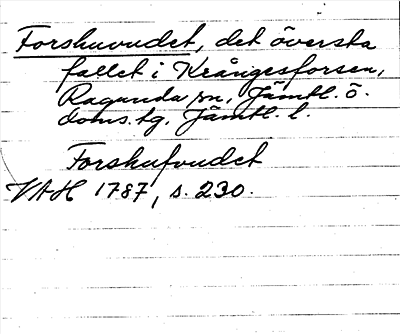 Forshuvudet, det översta
fallet i Krångesforsen,
Ragunda sn, Jämtl. ö.
doms.tg, Jämtl. l.
Forshufvudet
VAH 1787, s. 230.